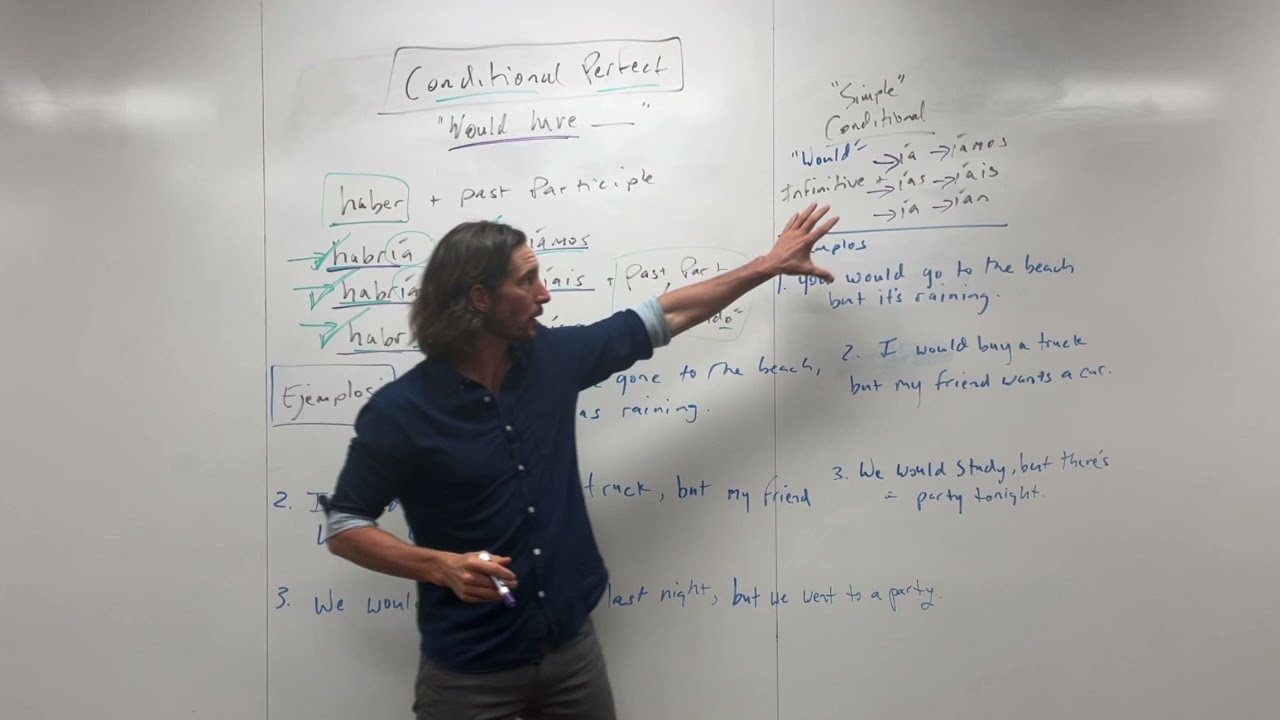 Conditional Perfect
"Would have ___"
haber + past Participle
→ habría
→ habría
→ habr
iamos
iais + Past Part
do"
Ejemplos
gone to the beach,
as raining.
2. I truck, but my friend
3. We woul last night, but we went to a party.
"Simple"
Conditional
"Would" → ía → íamos
Infinitive + → ías → íais
→ ía → ían
mplos
1. you would go to the beach
but it's raining.
2. I would buy a truck
but my friend wants a car.
3. We would study, but there's
a party tonight.